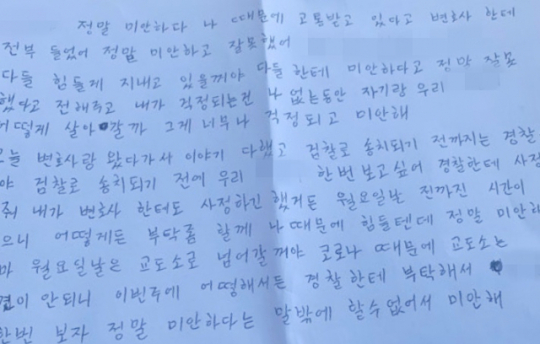 정말 미안하다 나 때문에 고통받고 있다고 변호사 한테
전부 들었어 정말 미안하고 잘못했어
다들 힘들게 지내고 있을꺼야 다들 한테 미안하다고 정말 잘못
했다고 전해주고 내가 걱정되는건 나 없는동안 자기랑 우리
어떻게 살아갈까 그게 너무나 걱정되고 미안해
오늘 변호사랑 왔다가서 이야기 다했고 검찰로 송치되기 전까지는 경찰
야 검찰로 송치되기 전에 우리 한번 보고싶어 경찰한테 사정
줘 내가 변호사 한터도 사정하긴 했거든 월요일날 전까진 시간이
으니 어떻게든 부탁좀 할께 나 때문에 힘들텐데 정말 미안해
마 월요일날은 교도소로 넘어갈꺼야 코로나 때문에 교도소는
견이 안되니 이번주에 어떻해서든 경찰한테 부탁해서
한번 보자 정말 미안하다는 말밖에 할수없어서 미안해